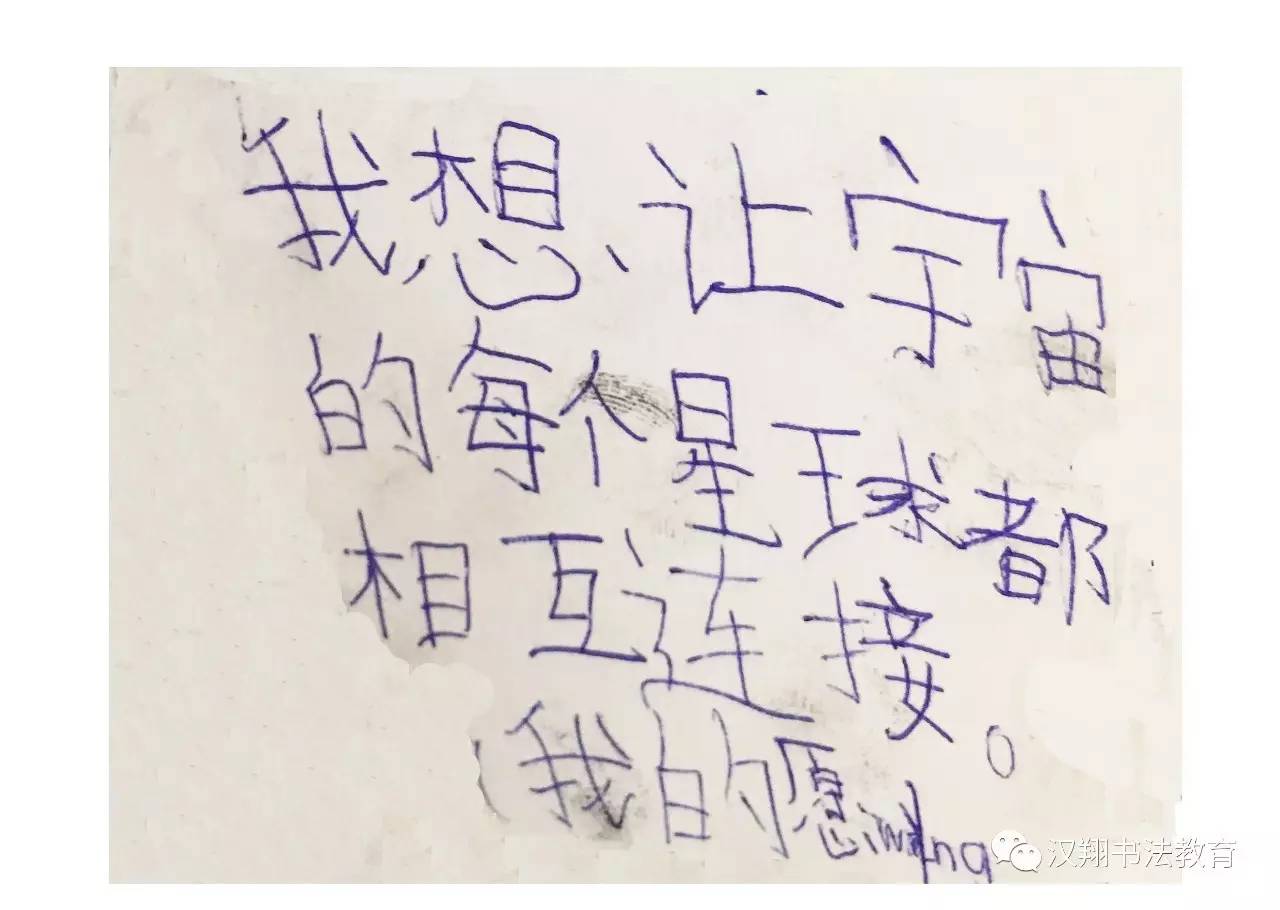 我想让宇宙
的每个星球都
相互连接。
我的愿wang
汉翔书法教育